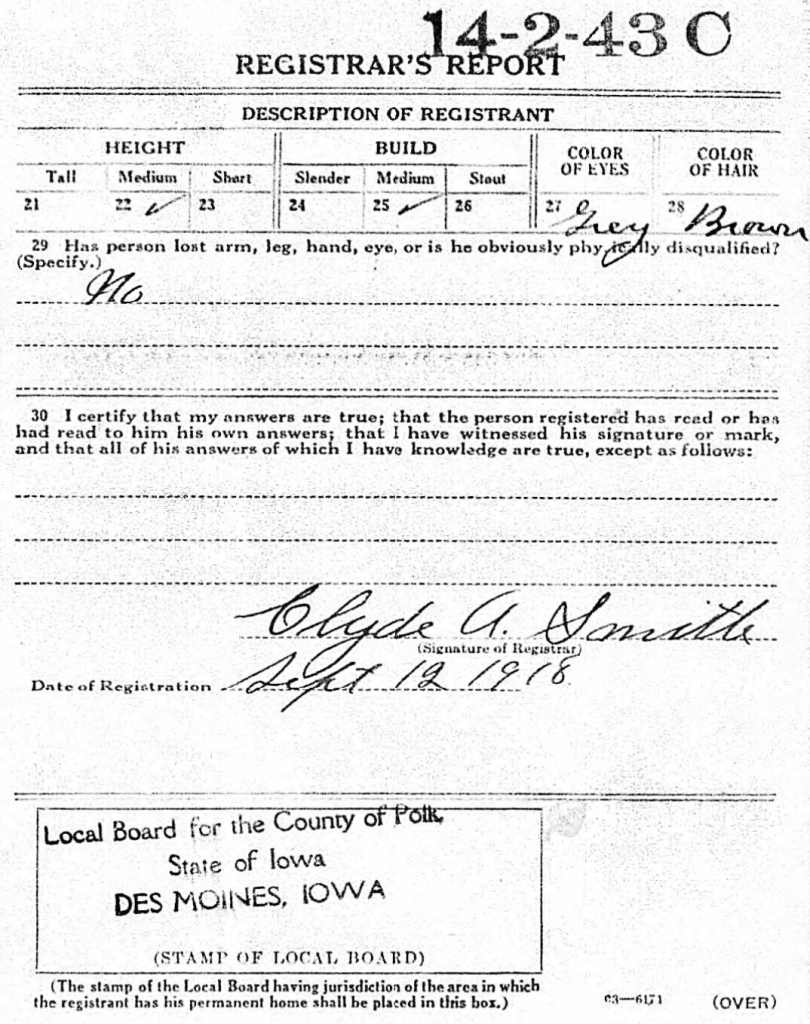 14-2-43 C
REGISTRAR'S REPORT
DESCRIPTION OF REGISTRANT
HEIGHT BUILD COLOR OF EYES COLOR OF HAIR
Tall Medium Short Slender Medium Stout
21 22 ✓ 23 24 25 ✓ 26 27 Grey 28 Brown
29 Has person lost arm, leg, hand, eye, or is he obviously physically disqualified?
(Specify.)
No
30 I certify that my answers are true; that the person registered has read or has
had read to him his own answers; that I have witnessed his signature or mark,
and that all of his answers of which I have knowledge are true, except as follows:
Clyde A. Smith
(Signature of Registrar)
Date of Registration Sept 12 1918
Local Board for the County of Polk,
State of Iowa
DES MOINES, IOWA
(STAMP OF LOCAL BOARD)
(The stamp of the Local Board having jurisdiction of the area in which
the registrant has his permanent home shall be placed in this box.)
03—6171 (OVER)